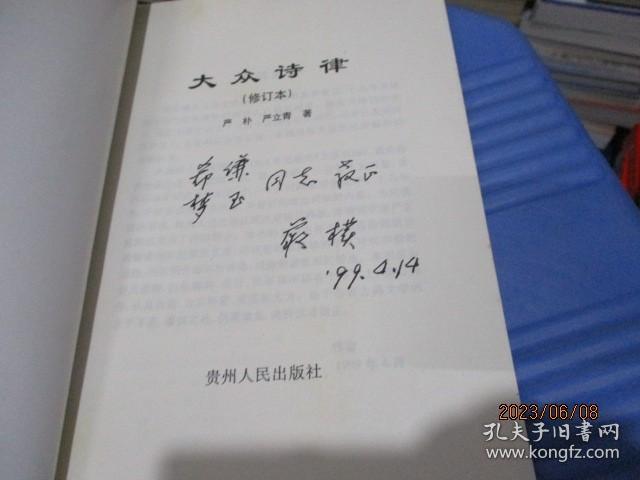 大众诗律
(修订本)
严 朴 严立青 著
希谦
梦玉 同志 教正
严朴
'99.4.14
贵州人民出版社
2023/06/08
孔夫子旧书网
www.kongfz.com